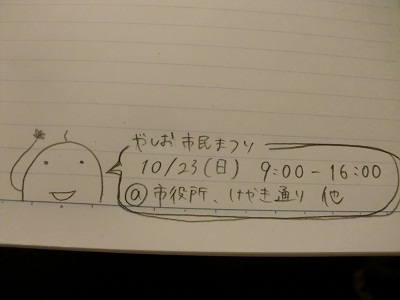 やしお市民まつり
10/23(日) 9:00-16:00
@市役所、けやき通り 他